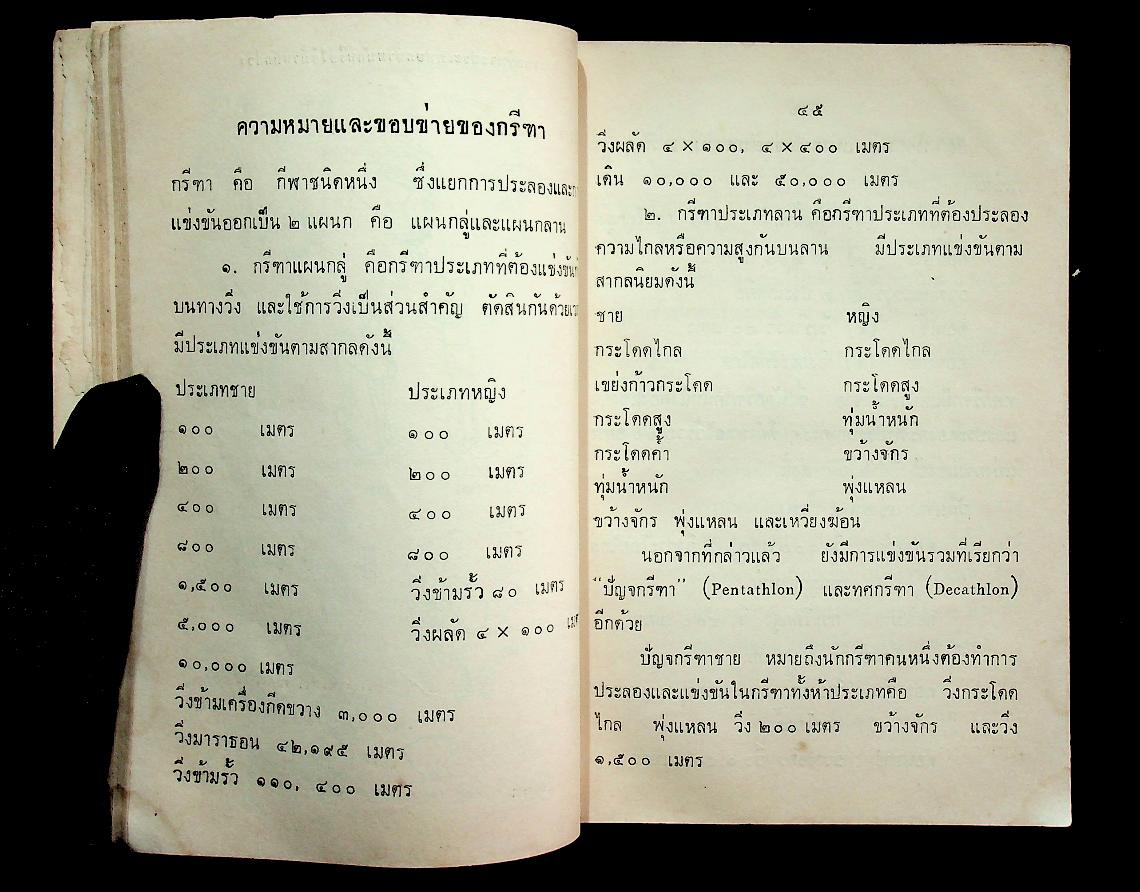 ความหมายและขอบข่ายของกรีฑา
กรีฑา คือ กีฬาชนิดหนึ่ง ซึ่งแยกการประลองและ
แข่งขันออกเป็น ๒ แผนก คือ แผนกลู่และแผนกลาน
๑. กรีฑาแผนกลู่ คือกรีฑาประเภทที่ต้องแข่งขัน
บนทางวิ่ง และใช้การวิ่งเป็นส่วนสำคัญ ตัดสินกันด้วย
มีประเภทแข่งขันตามสากลดังนี้
ประเภทชาย ประเภทหญิง
๑๐๐ เมตร ๑๐๐ เมตร
๒๐๐ เมตร ๒๐๐ เมตร
๔๐๐ เมตร ๔๐๐ เมตร
๘๐๐ เมตร ๘๐๐ เมตร
๑,๕๐๐ เมตร วิ่งข้ามรั้ว ๘๐ เมตร
๕,๐๐๐ เมตร วิ่งผลัด ๔ × ๑๐๐
๑๐,๐๐๐ เมตร
วิ่งข้ามเครื่องกีดขวาง ๓,๐๐๐ เมตร
วิ่งมาราธอน ๔๒,๑๙๕ เมตร
วิ่งข้ามรั้ว ๑๑๐, ๔๐๐ เมตร
๔๕
วิ่งผลัด ๔ × ๑๐๐, ๔ × ๔๐๐ เมตร
เดิน ๑๐,๐๐๐ และ ๕๐,๐๐๐ เมตร
๒. กรีฑาประเภทลาน คือกรีฑาประเภทที่ต้องประลอง
ความไกลหรือความสูงกันบนลาน มีประเภทแข่งขันตาม
สากลนิยมดังนี้
ชาย หญิง
กระโดดไกล กระโดดไกล
เขย่งก้าวกระโดด กระโดดสูง
กระโดดสูง ทุ่มน้ำหนัก
กระโดดค้ำ ขว้างจักร
ทุ่มน้ำหนัก พุ่งแหลน
ขว้างจักร พุ่งแหลน และเหวี่ยงฆ้อน
นอกจากที่กล่าวแล้ว ยังมีการแข่งขันรวมที่เรียกว่า
“ปัญจกรีฑา” (Pentathlon) และทศกรีฑา (Decathlon)
อีกด้วย
ปัญจกรีฑาชาย หมายถึงนักกรีฑาคนหนึ่งต้องทำการ
ประลองและแข่งขันในกรีฑาทั้งห้าประเภทคือ วิ่งกระโดด
ไกล พุ่งแหลน วิ่ง ๒๐๐ เมตร ขว้างจักร และวิ่ง
๑,๕๐๐ เมตร